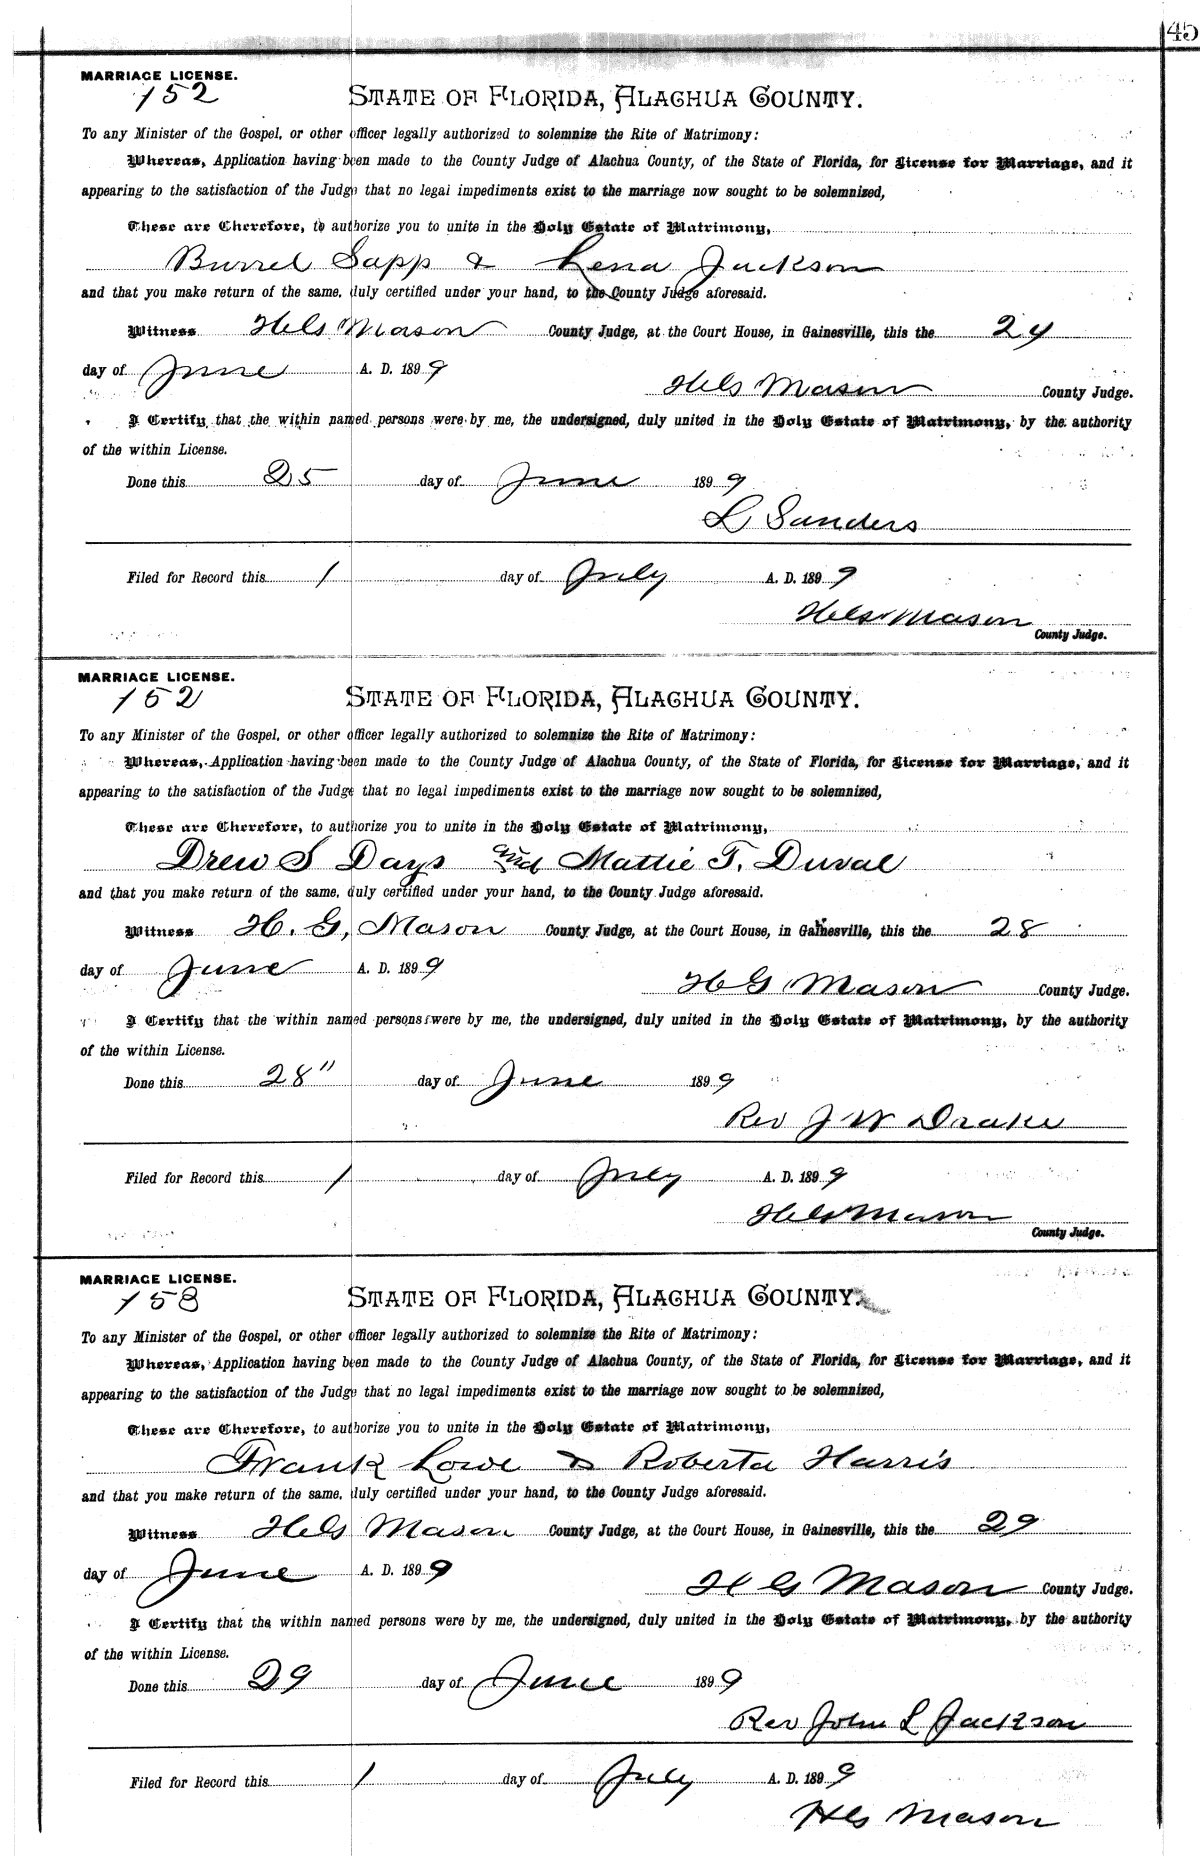 45
MARRIAGE LICENSE.
152
STATE OF FLORIDA, ALACHUA COUNTY.
To any Minister of the Gospel, or other officer legally authorized to solemnize the Rite of Matrimony:
Whereas, Application having been made to the County Judge of Alachua County, of the State of Florida, for License for Marriage, and it
appearing to the satisfaction of the Judge that no legal impediments exist to the marriage now sought to be solemnized,
These are Therefore, to authorize you to unite in the Holy Estate of Matrimony,
Burrel Sapp & Lena Jackson
and that you make return of the same, duly certified under your hand, to the County Judge aforesaid.
Witness H G Mason County Judge, at the Court House, in Gainesville, this the 24
day of June A. D. 1899
H G Mason County Judge.
I Certify that the within named persons were by me, the undersigned, duly united in the Holy Estate of Matrimony, by the authority
of the within License.
Done this 25 day of June 1899
L Sanders
Filed for Record this 1 day of July A. D. 1899
H G Mason
County Judge.
MARRIAGE LICENSE.
152
STATE OF FLORIDA, ALACHUA COUNTY.
To any Minister of the Gospel, or other officer legally authorized to solemnize the Rite of Matrimony:
Whereas, Application having been made to the County Judge of Alachua County, of the State of Florida, for License for Marriage, and it
appearing to the satisfaction of the Judge that no legal impediments exist to the marriage now sought to be solemnized,
These are Therefore, to authorize you to unite in the Holy Estate of Matrimony,
Drew S Days and Mattie T. Duval
and that you make return of the same, duly certified under your hand, to the County Judge aforesaid.
Witness H. G, Mason County Judge, at the Court House, in Gainesville, this the 28
day of June A. D. 1899
H G Mason County Judge.
I Certify that the within named persons were by me, the undersigned, duly united in the Holy Estate of Matrimony, by the authority
of the within License.
Done this 28" day of June 1899
Rev J W Drake
Filed for Record this 1 day of July A. D. 1899
H G Mason
County Judge.
MARRIAGE LICENSE.
153
STATE OF FLORIDA, ALACHUA COUNTY.
To any Minister of the Gospel, or other officer legally authorized to solemnize the Rite of Matrimony:
Whereas, Application having been made to the County Judge of Alachua County, of the State of Florida, for License for Marriage, and it
appearing to the satisfaction of the Judge that no legal impediments exist to the marriage now sought to be solemnized,
These are Therefore, to authorize you to unite in the Holy Estate of Matrimony,
Frank Lowe & Roberta Harris
and that you make return of the same, duly certified under your hand, to the County Judge aforesaid.
Witness H G Mason County Judge, at the Court House, in Gainesville, this the 29
day of June A. D. 1899
H G Mason County Judge.
I Certify that the within named persons were by me, the undersigned, duly united in the Holy Estate of Matrimony, by the authority
of the within License.
Done this 29 day of June 1899
Rev John L Jackson
Filed for Record this 1 day of July A. D. 1899
H G Mason